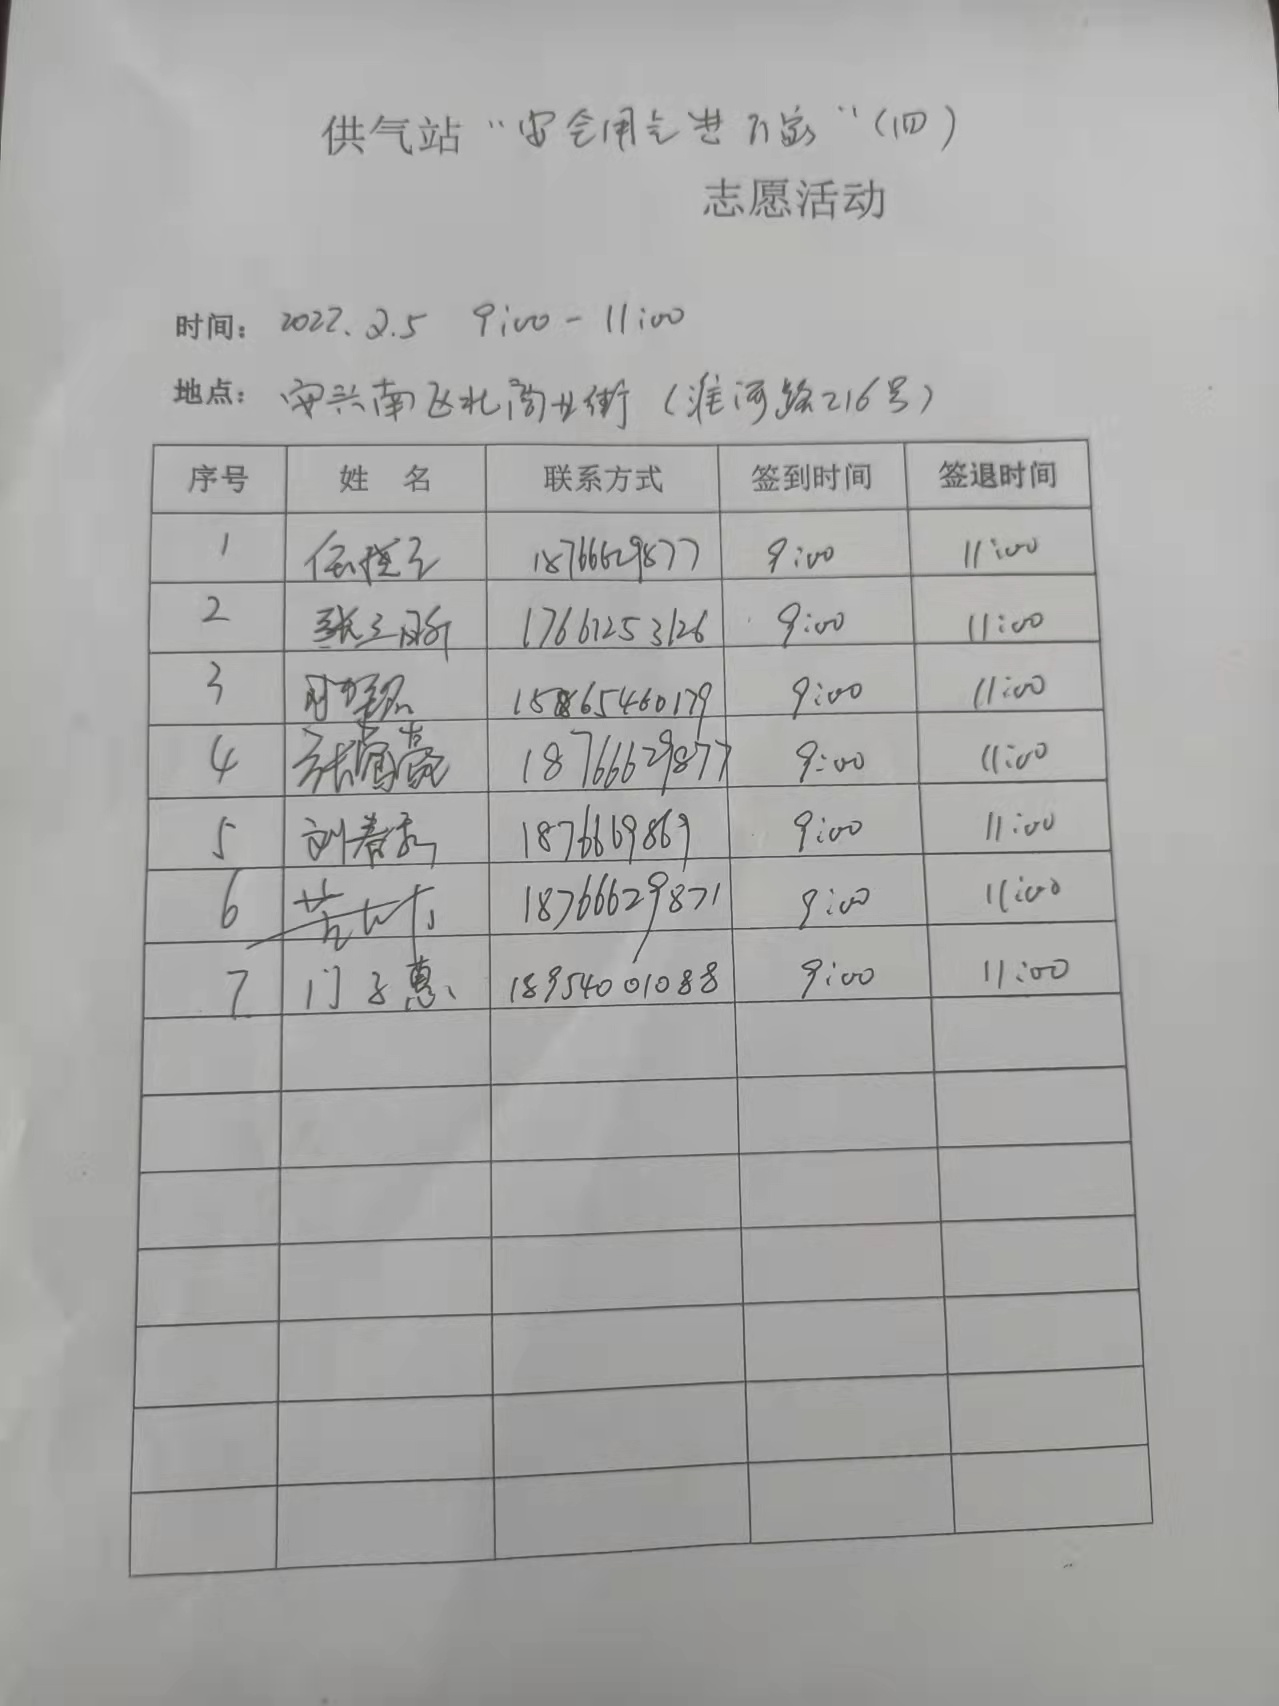 供气站“安全用气进万家”(四)
志愿活动
时间: 2022.2.5 9:00-11:00
地点: 安兴南区北商业街(淮河路216号)
序号 姓 名 联系方式 签到时间 签退时间
1 18766629877 9:00 11:00
2 张立 17661253126 9:00 11:00
3 15865460179 9:00 11:00
4 张 18766629877 9:00 11:00
5 刘春 1876669869 9:00 11:00
6 18766629871 9:00 11:00
7 门子惠 18954001088 9:00 11:00